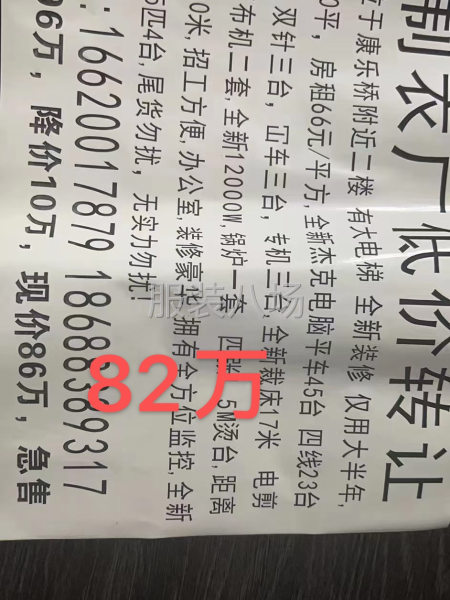 制衣厂低价转让
位于康乐桥附近二楼 有大电梯 全新装修 仅用大半年,
0平, 房租66元/平方,全新杰克电脑平车45台 四线23台
双针三台, 冚车三台, 专机三台 全新裁床17米 电剪
布机二套,全新12000W,锅炉一套 四张 .5M烫台,距离
0米, 招工方便,办公室,装修豪华,拥有全方位监控,全新
5匹4台,尾货勿扰, 无实力勿扰!
:16620017879 18688389317
96万, 降价10万, 现价86万, 急售
82万
服装八场